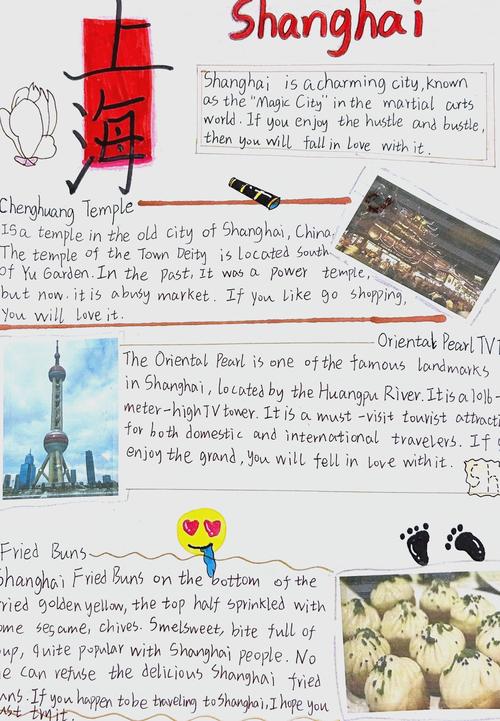 Shanghai
上海
Shanghai is a charming city, known
as the "Magic City" in the martial arts
world. If you enjoy the hustle and bustle,
then you will fall in love with it.
Chenghuang Temple
Is a temple in the old city of Shanghai, China.
The temple of the Town Deity is located South
of Yu Garden. In the Past, It was a power temple,
but now. it is a busy market. If you like go shopping,
You will love it.
Oriental Pearl TV T
The Oriental Pearl is one of the famous landmarks
in Shanghai, located by the Huangpu River. It is a 1016-
meter-high TV tower. It is a must-visit tourist attracti
for both domestic and international travelers. If
enjoy the grand, you will fell in love with it.
Sh
Fried Buns
Shanghai Fried Buns on the bottom of the
ried golden yellow, the top half sprinkled with
ome sesame, chives. Smelsweet, bite full of
oup, quite popular with Shanghai people. No
e can refuse the delicious Shanghai fried
uns. If you happen to be traveling to Shanghai, I hope you
ust try it.